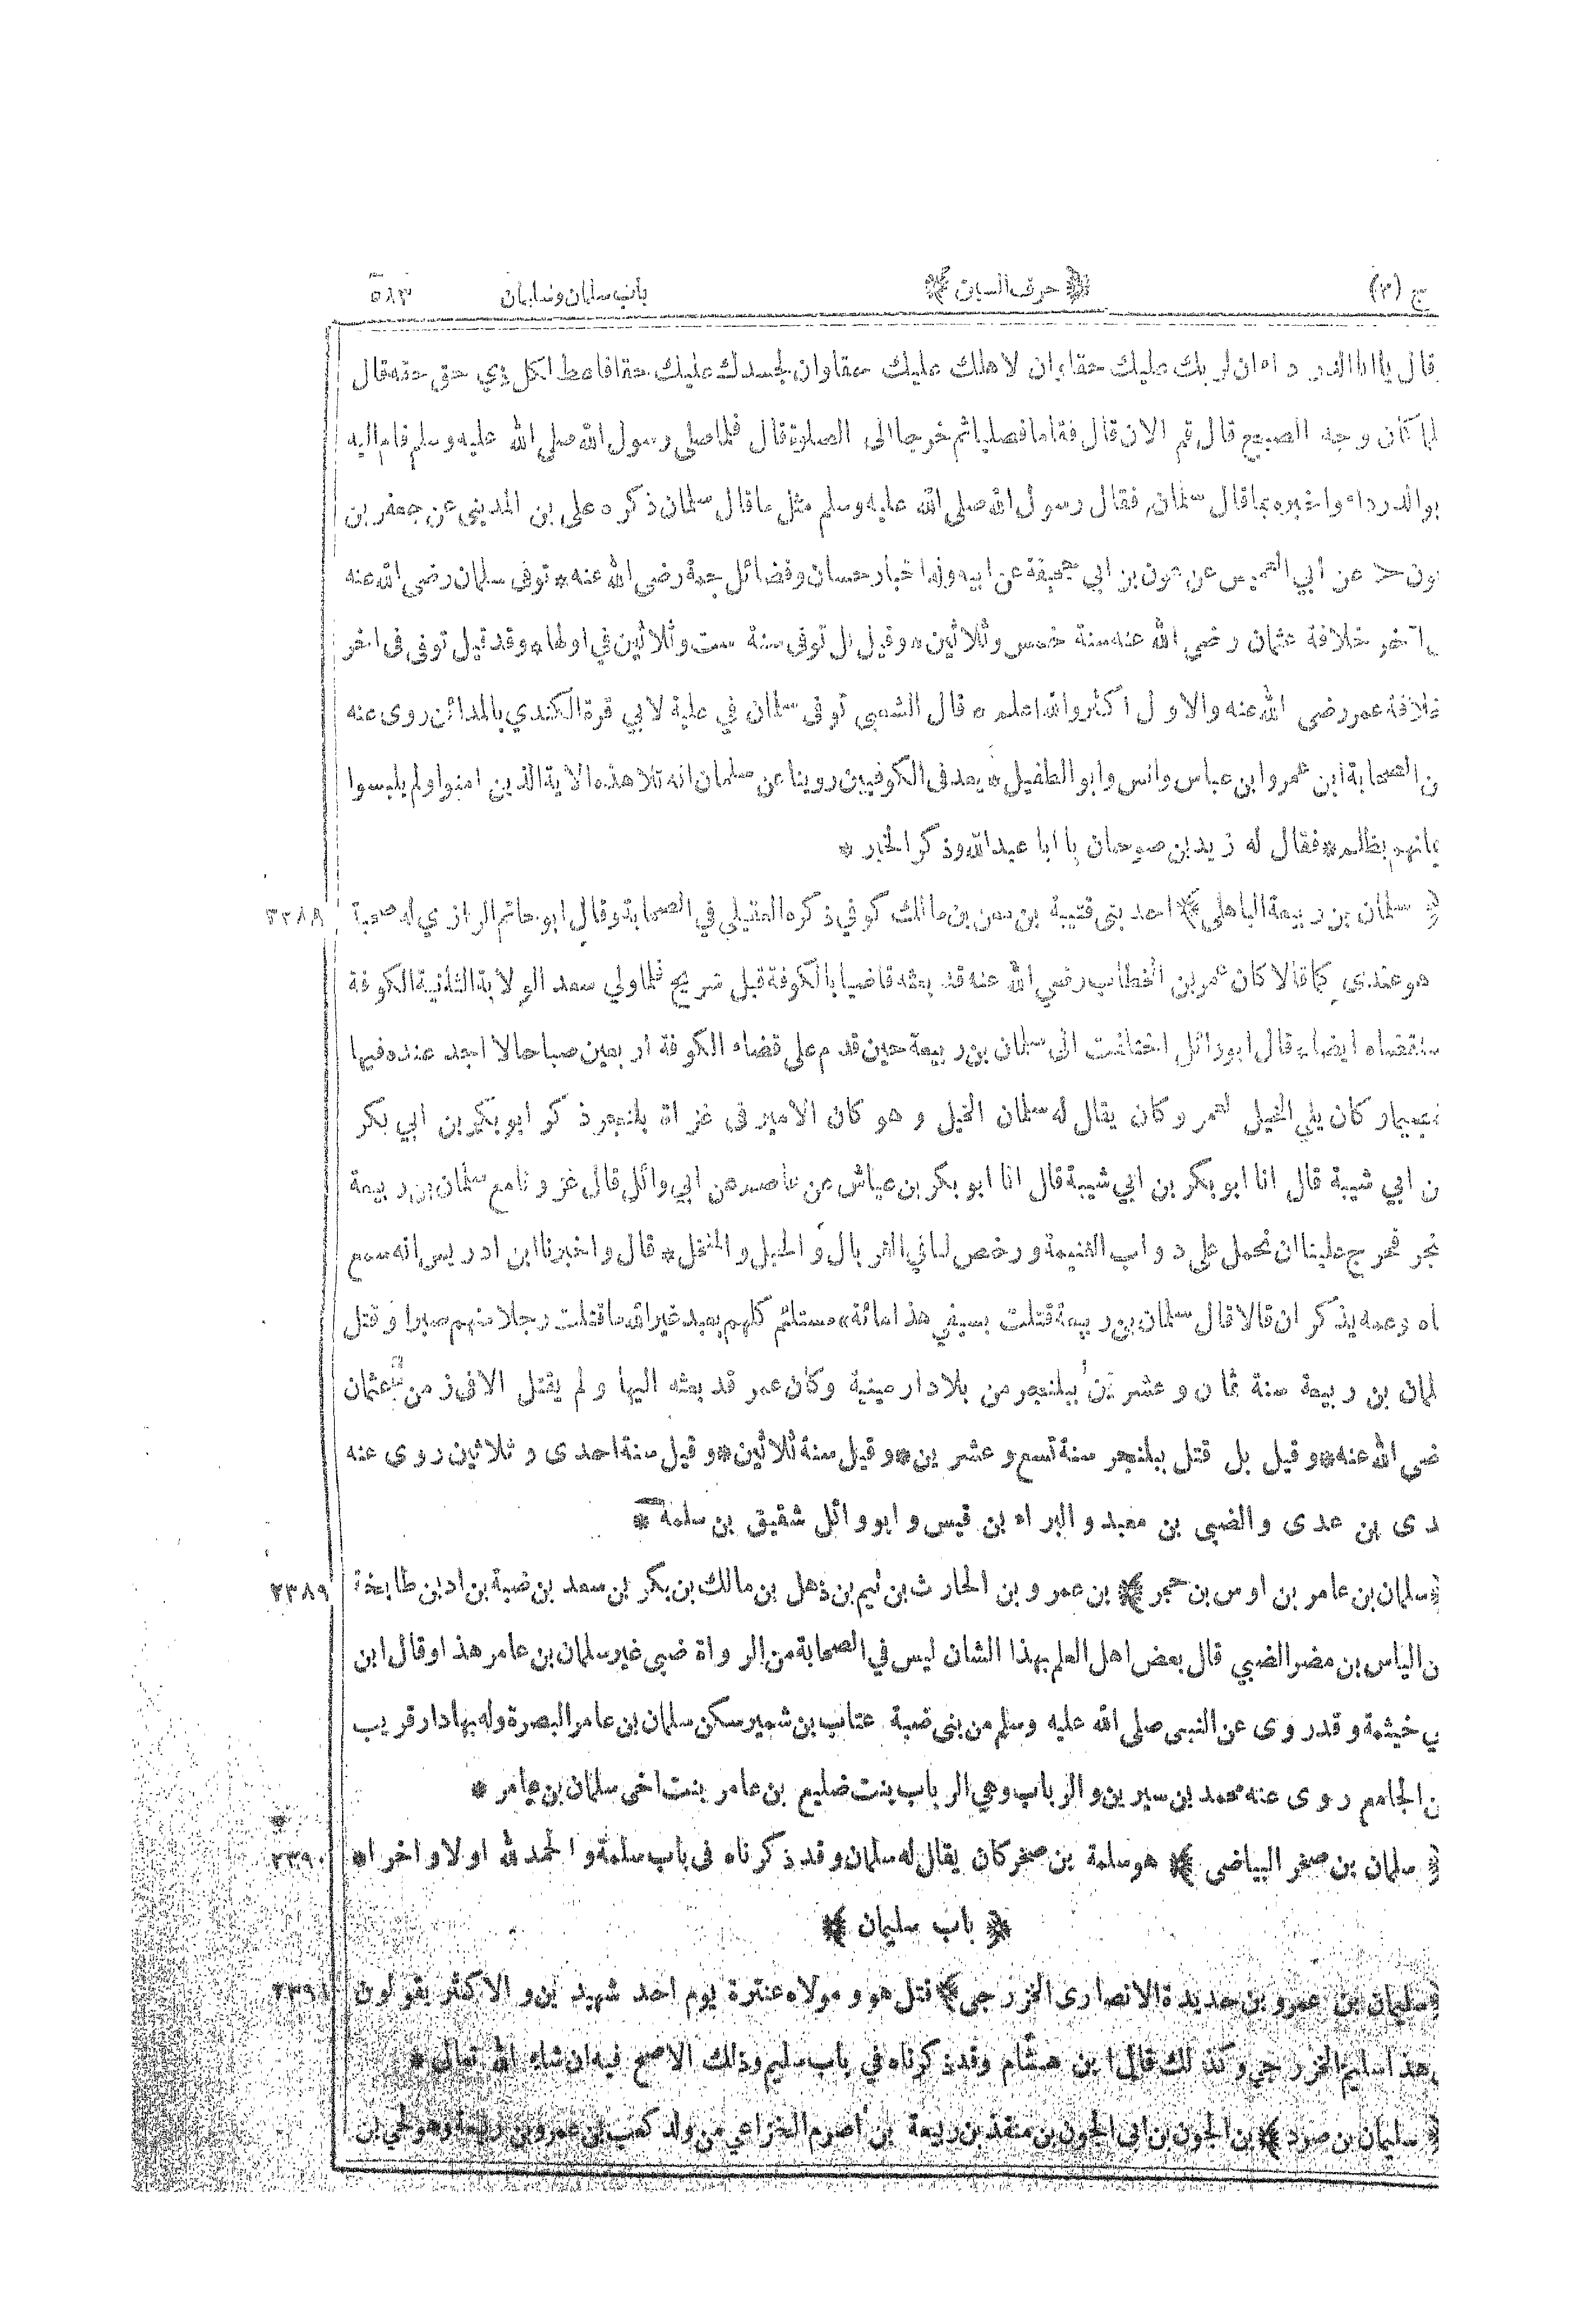 ج (٢) ﴿ حرف السين ﴾ باب سلمان وسليمان ٥٨٣
قال يا ابا الدرداء ان لربك عليك حقا وان لاهلك عليك حقا وان لجسدك عليك حقا فاعط لكل ذي حق حقه قال
لما كان وجه الصبح قال قم الان قال فقاما فصليا ثم خرجا الى الصلوة قال فلما صلى رسول الله صلى الله عليه وسلم قام اليه
بو الدرداء واخبره بما قال سلمان فقال رسول الله صلى الله عليه وسلم مثل ما قال سلمان ذكره على بن المديني عن جعفر بن
ون عن ابي العميس عن عون بن ابي جحيفة عن ابيه وله اخبار حسان وفضائل جمة رضى الله عنه * توفى سلمان رضى الله عنه
آخر خلافة عثمان رضي الله عنه سنة خمس وثلاثين * وقيل بل توفى سنة ست وثلاثين في اولها * وقد قيل توفى فى اخر
خلافة عمر رضى الله عنه والاول اكثر والله اعلم * قال الشعبي توفى سلمان في علية لابي قرة الكندي بالمدائن روى عنه
ن الصحابة ابن عمر وابن عباس وانس وابو الطفيل * يعد فى الكوفيين روينا عن سلمان انه تلا هذه الاية الذين امنوا ولم يلبسوا
يمانهم بظلم * فقال له زيد بن صوحان يا ابا عبد الله وذكر الخبر *
﴿ سلمان بن ربيعة الباهلي ﴾ احد بنى قتيبة بن معن بن مالك كوفي ذكره العقيلي في الصحابة وقال ابو حاتم الرازي له صحبة ٢٣٨٨
هو عندى كما قالا كان عمر بن الخطاب رضي الله عنه قد بعثه قاضيا بالكوفة قبل شريح فلما ولي سعد الولاية الثانية الكوفة
ستقضاه ايضا * قال ابو وائل اختلفت الى سلمان بن ربيعة حين قدم على قضاء الكوفة اربعين صباحا لا اجد عنده فيها
خصيما وكان يلي الخيل لعمر وكان يقال له سلمان الخيل و هو كان الامير فى غزاة بلنجر ذكر ابو بكر بن ابي بكر
ن ابي شيبة قال انا ابو بكر بن ابي شيبة قال انا ابو بكر بن عياش عن عاصم عن ابي وائل قال غزونا مع سلمان بن ربيعة
نجر فحرج علينا ان نحمل على دواب الغنيمة ورخص لنا في الغربال و الحبل و المنخل * قال واخبرنا ابن ادريس انه سمع
باه وعمه يذكران قالا قال سلمان بن ربيعة قتلت بسيفي هذا مائة مستلئم كلهم يعبد غير الله ما قتلت رجلا منهم صبرا و قتل
لمان بن ربيعة سنة ثمان وعشرين ببلنجر من بلاد ارمينية وكان عمر قد بعثه اليها و لم يقتل الا فى زمن عثمان
ضى الله عنه * وقيل بل قتل ببلنجر سنة تسع و عشرين * وقيل سنة ثلاثين * و قيل سنة احدى و ثلاثين روى عنه
دى بن عدى والضبى بن معبد والبراء بن قيس و ابو وائل شقيق بن سلمة *
﴿ سلمان بن عامر بن اوس بن حجر ﴾ بن عمرو بن الحارث بن تيم بن ذهل بن مالك بن بكر بن سعد بن ضبة بن اد بن طابخة ٢٣٨٩
ن الياس بن مضر الضبي قال بعض اهل العلم بهذا الشان ليس في الصحابة من الرواة ضبى غير سلمان بن عامر هذا وقال ابن
بي خيثمة وقد روى عن النبى صلى الله عليه وسلم من بنى ضبة عتاب بن شمير سكن سلمان بن عامر البصرة وله بها دار قريب
ن الجامع روى عنه محمد بن سيرين والرباب وهي الرباب بنت ضليع بن عامر بنت اخى سلمان بن عامر *
﴿ سلمان بن صخر البياضى ﴾ هو سلمة بن صخر كان يقال له سلمان وقد ذكرناه فى باب سلمة و الحمد لله اولا و اخرا * ٢٣٩٠
﴿ باب سليمان ﴾
﴿ سليمان بن عمرو بن حديدة الانصارى الخزرجى ﴾ قتل هو و مولاه عنترة يوم احد شهيدين و الاكثر يقولون ٢٣٩١
هذا سليم الخزرجي وكذلك قال ابن هشام وقد ذكرناه في باب سليم وذلك الاصح فيه ان شاء الله تعالى *
﴿ سليمان بن صرد ﴾ بن الجون بن ابى الجون بن منقذ بن ربيعة بن اصرم الخزاعي من ولد كعب بن عمرو بن ربيعة وهو لحي بن